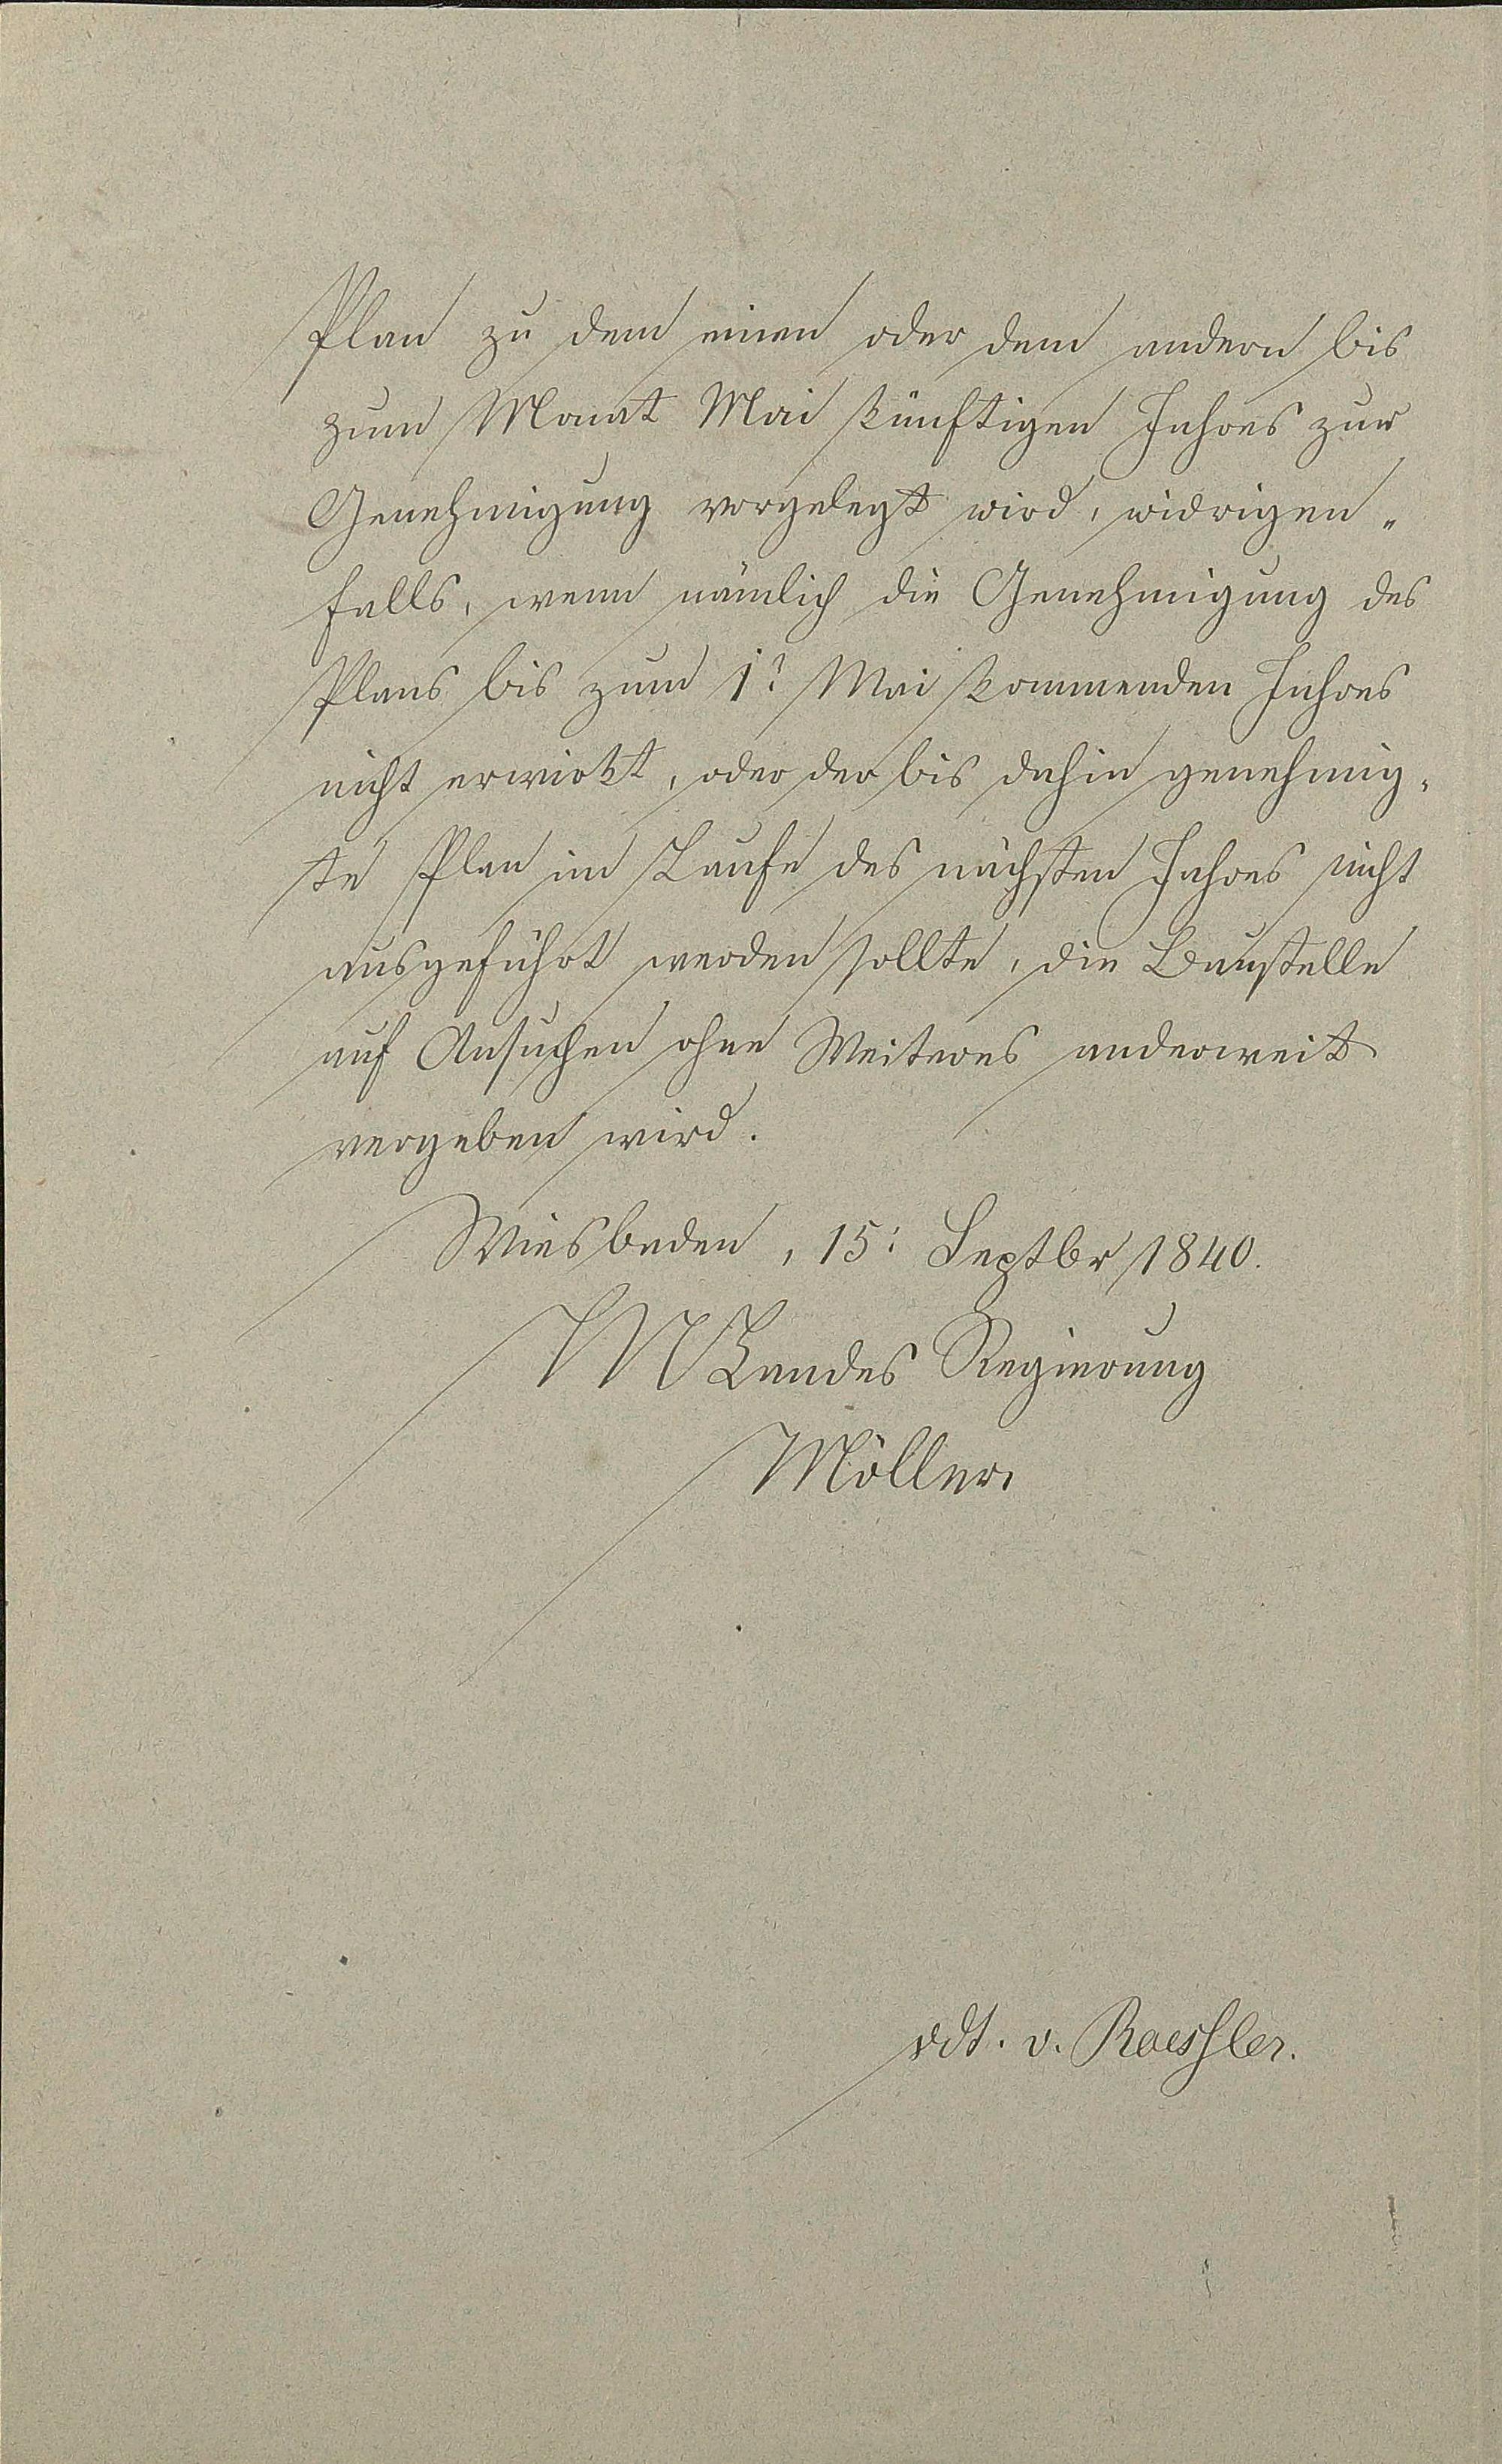 Plan zu dem einen oder dem andern bis
zum Monat Mai künftigen Jahres zur
Genehmigung vorgelegt wird, widrigen-
falls, wenn nämlich die Genehmigung des
Plans bis zum 1t Mai kommenden Jahres
nicht erwirkt, oder der bis dahin genehmig-
te Plan im Laufe des nächsten Jahres nicht
ausgeführt werden sollte, die Baustelle
auf Ansuchen ohne Weiteres anderweit
vergeben wird.
Wiesbaden, 15: Septbr 1840.
HN Landes Regierung
Möller.
vdt. v. Roessler.